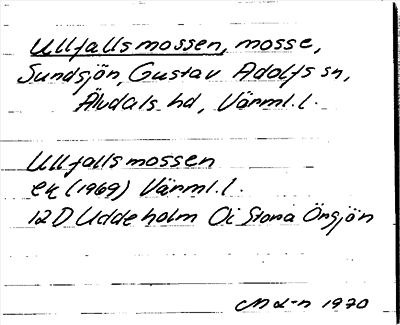 Ullfallsmossen, mosse,
Sundsjön, Gustav Adolfs sn,
Älvdals hd, Värml. l.
Ullfallsmossen
ek (1969) Värml. l.
12 D Uddeholm Oi Stora Örsjön
1970